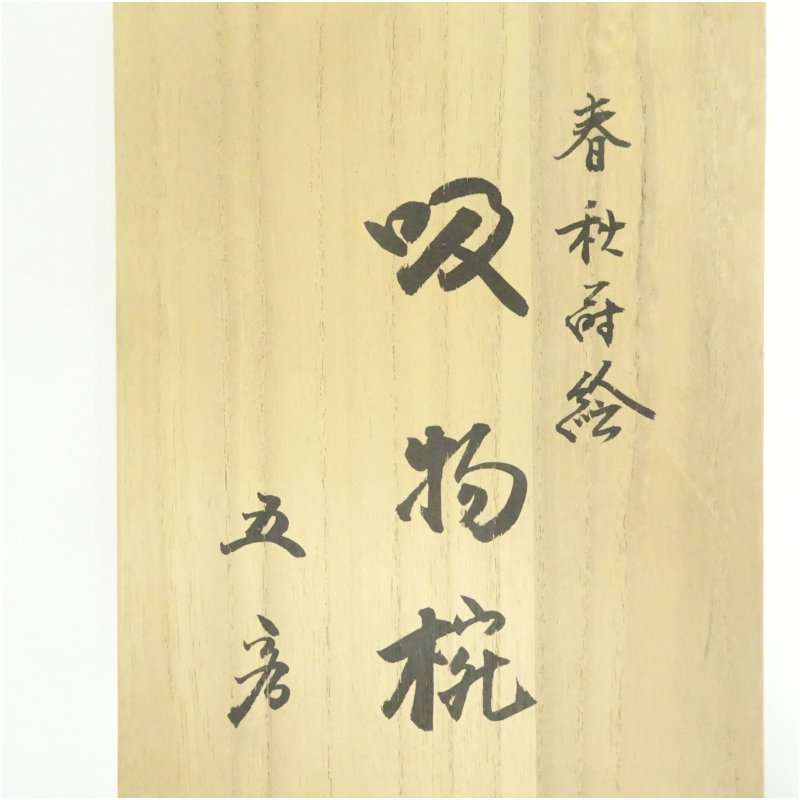 春秋蒔絵
吸物椀
五客